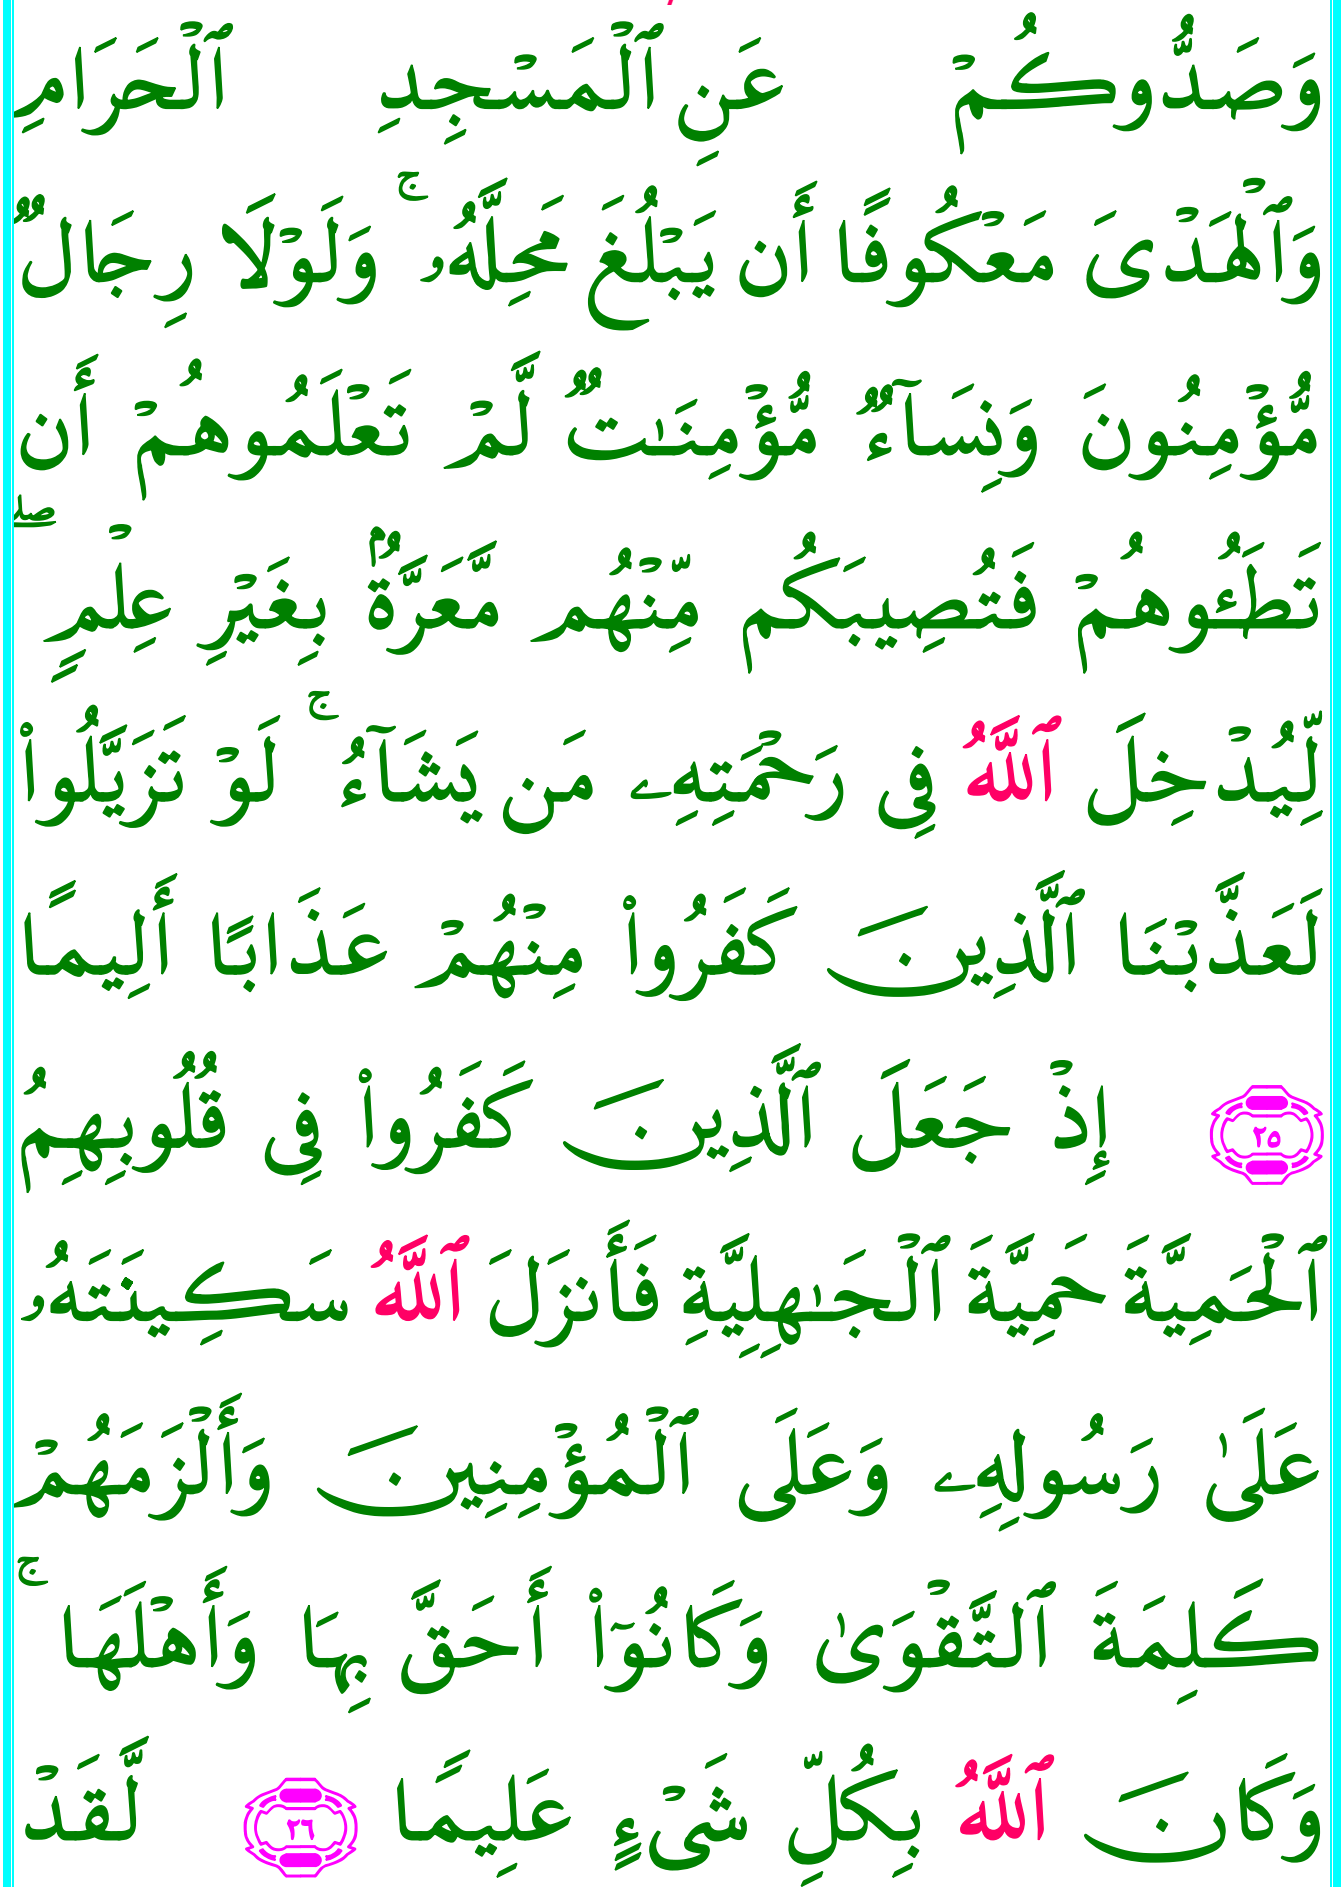 وَصَدُّوكُمْ عَنِ ٱلْمَسْجِدِ ٱلْحَرَامِ
وَٱلْهَدْىَ مَعْكُوفًا أَن يَبْلُغَ مَحِلَّهُۥ ۚ وَلَوْلَا رِجَالٌ
مُّؤْمِنُونَ وَنِسَآءٌ مُّؤْمِنَـٰتٌ لَّمْ تَعْلَمُوهُمْ أَن
تَطَـُٔوهُمْ فَتُصِيبَكُم مِّنْهُم مَّعَرَّةٌۢ بِغَيْرِ عِلْمٍ ۖ
لِّيُدْخِلَ ٱللَّهُ فِى رَحْمَتِهِۦ مَن يَشَآءُ ۚ لَوْ تَزَيَّلُوا۟
لَعَذَّبْنَا ٱلَّذِينَ كَفَرُوا۟ مِنْهُمْ عَذَابًا أَلِيمًا
٢٥ إِذْ جَعَلَ ٱلَّذِينَ كَفَرُوا۟ فِى قُلُوبِهِمُ
ٱلْحَمِيَّةَ حَمِيَّةَ ٱلْجَـٰهِلِيَّةِ فَأَنزَلَ ٱللَّهُ سَكِينَتَهُۥ
عَلَىٰ رَسُولِهِۦ وَعَلَى ٱلْمُؤْمِنِينَ وَأَلْزَمَهُمْ
كَلِمَةَ ٱلتَّقْوَىٰ وَكَانُوٓا۟ أَحَقَّ بِهَا وَأَهْلَهَا ۚ
وَكَانَ ٱللَّهُ بِكُلِّ شَىْءٍ عَلِيمًا ٢٦ لَّقَدْ